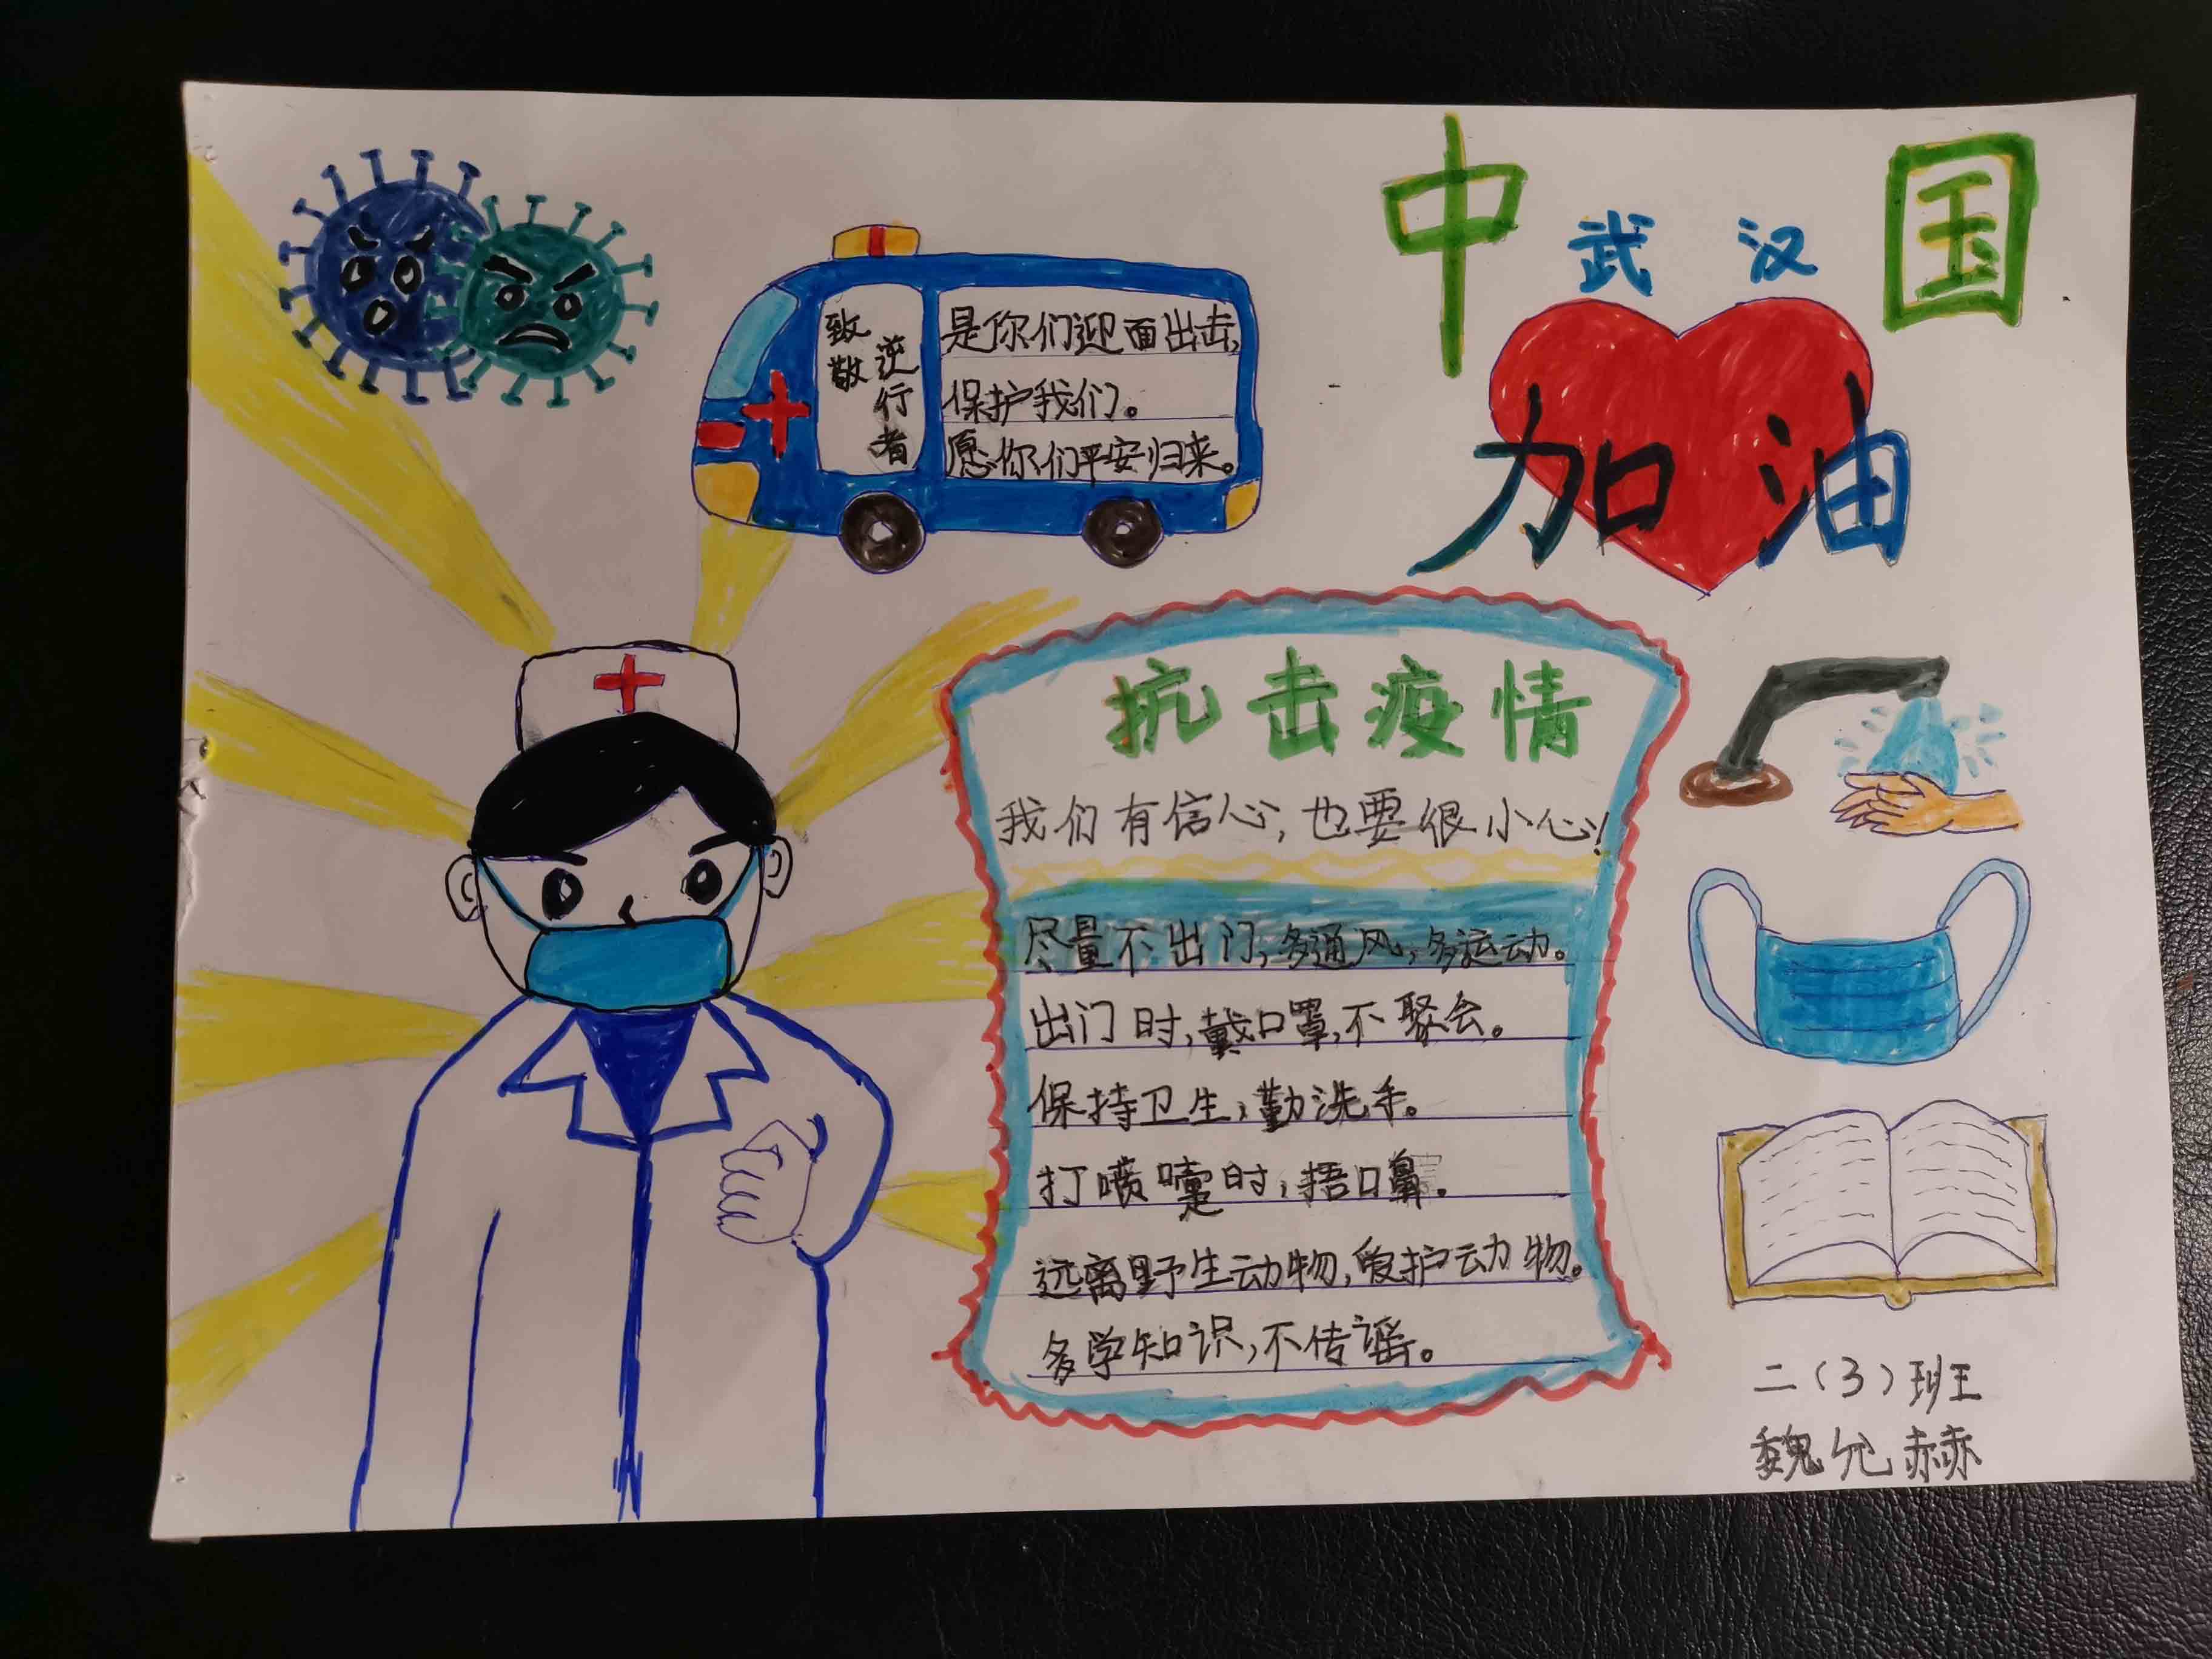 中国
武汉
加油
致敬
逆行者
是你们迎面出击,
保护我们。
愿你们平安归来。
抗击疫情
我们有信心,也要很小心!
尽量不出门,多通风,多运动。
出门时,戴口罩,不聚会。
保持卫生,勤洗手。
打喷嚏时,捂口鼻.
远离野生动物,爱护动物。
多学知识,不传谣。
二(3)班
魏允赫